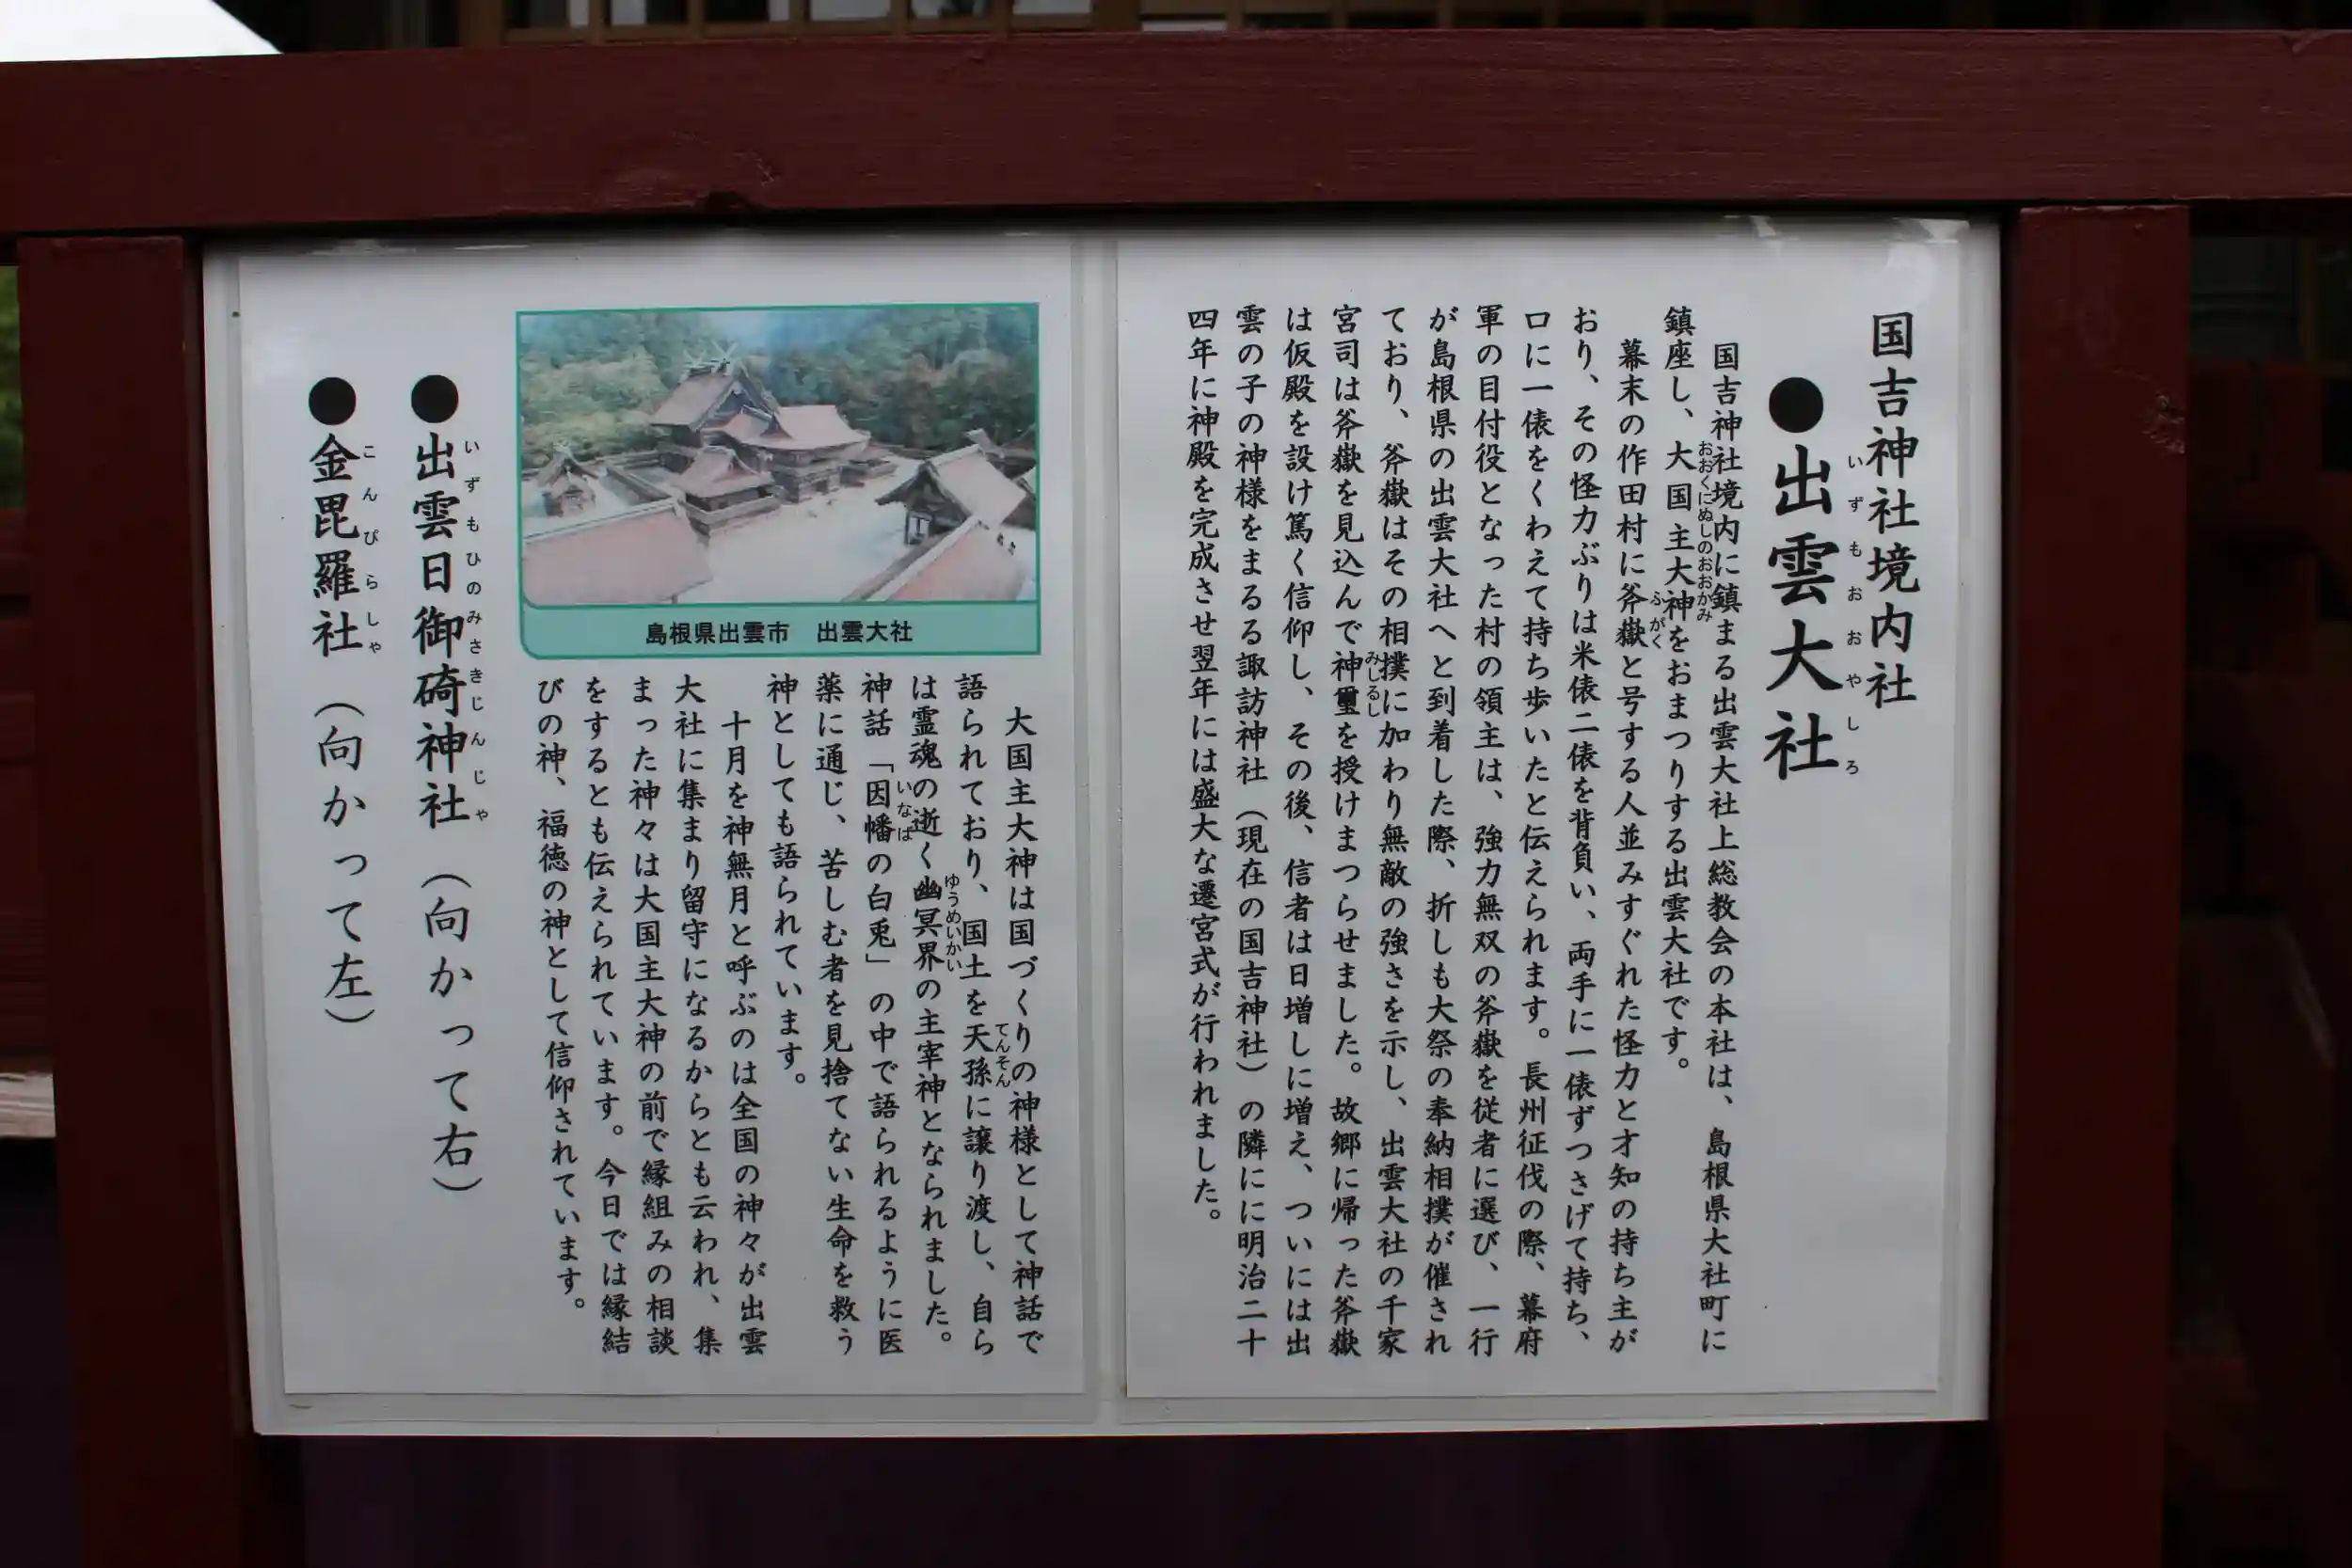 国吉神社境内社
●出雲大社
いずもおおやしろ
国吉神社境内に鎮まる出雲大社上総教会の本社は、島根県大社町に
鎮座し、大国主大神をおまつりする出雲大社です。
おおくにぬしのおおかみ
幕末の作田村に斧嶽と号する人並みすぐれた怪力と才知の持ち主が
ふがく
おり、その怪力ぶりは米俵二俵を背負い、両手に一俵ずつさげて持ち、
口に一俵をくわえて持ち歩いたと伝えられます。長州征伐の際、幕府
軍の目付役となった村の領主は、強力無双の斧嶽を従者に選び、一行
が島根県の出雲大社へと到着した際、折しも大祭の奉納相撲が催され
ており、斧嶽はその相撲に加わり無敵の強さを示し、出雲大社の千家
宮司は斧嶽を見込んで神璽を授けまつらせました。故郷に帰った斧嶽
みしるし
は仮殿を設け篤く信仰し、その後、信者は日増しに増え、ついには出
雲の子の神様をまるる諏訪神社（現在の国吉神社）の隣にに明治二十
四年に神殿を完成させ翌年には盛大な遷宮式が行われました。
島根県出雲市　出雲大社
大国主大神は国づくりの神様として神話で
語られており、国土を天孫に譲り渡し、自ら
てんそん
は霊魂の逝く幽冥界の主宰神となられました。
ゆうめいかい
神話「因幡の白兎」の中で語られるように医
いなば
薬に通じ、苦しむ者を見捨てない生命を救う
神としても語られています。
十月を神無月と呼ぶのは全国の神々が出雲
大社に集まり留守になるからとも云われ、集
まった神々は大国主大神の前で縁組みの相談
をするとも伝えられています。今日では縁結
びの神、福徳の神として信仰されています。
●出雲日御碕神社（向かって右）
いずもひのみさきじんじゃ
●金毘羅社（向かって左）
こんぴらしゃ